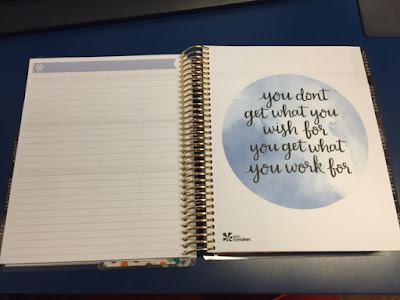 you dont
get what you
wish for
you get what
you work for
erin
condren